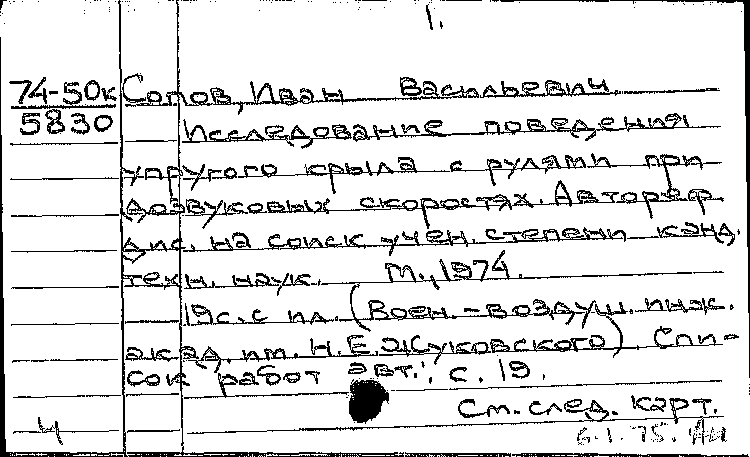 1.
74-50к Сопов, Иван Васильевич.
5830 Исследование поведения
упругого крыла с рулями при
дозвуковых скоростях. Автореф.
дис. на соиск. учен. степени канд.
техн. наук. М., 1974.
19с. с ил. (Воен.-воздуш. инж.
акад. им. Н.Е. Жуковского). Спи-
сок работ авт.: с. 19.
См. след. карт.
4 6.1.75.